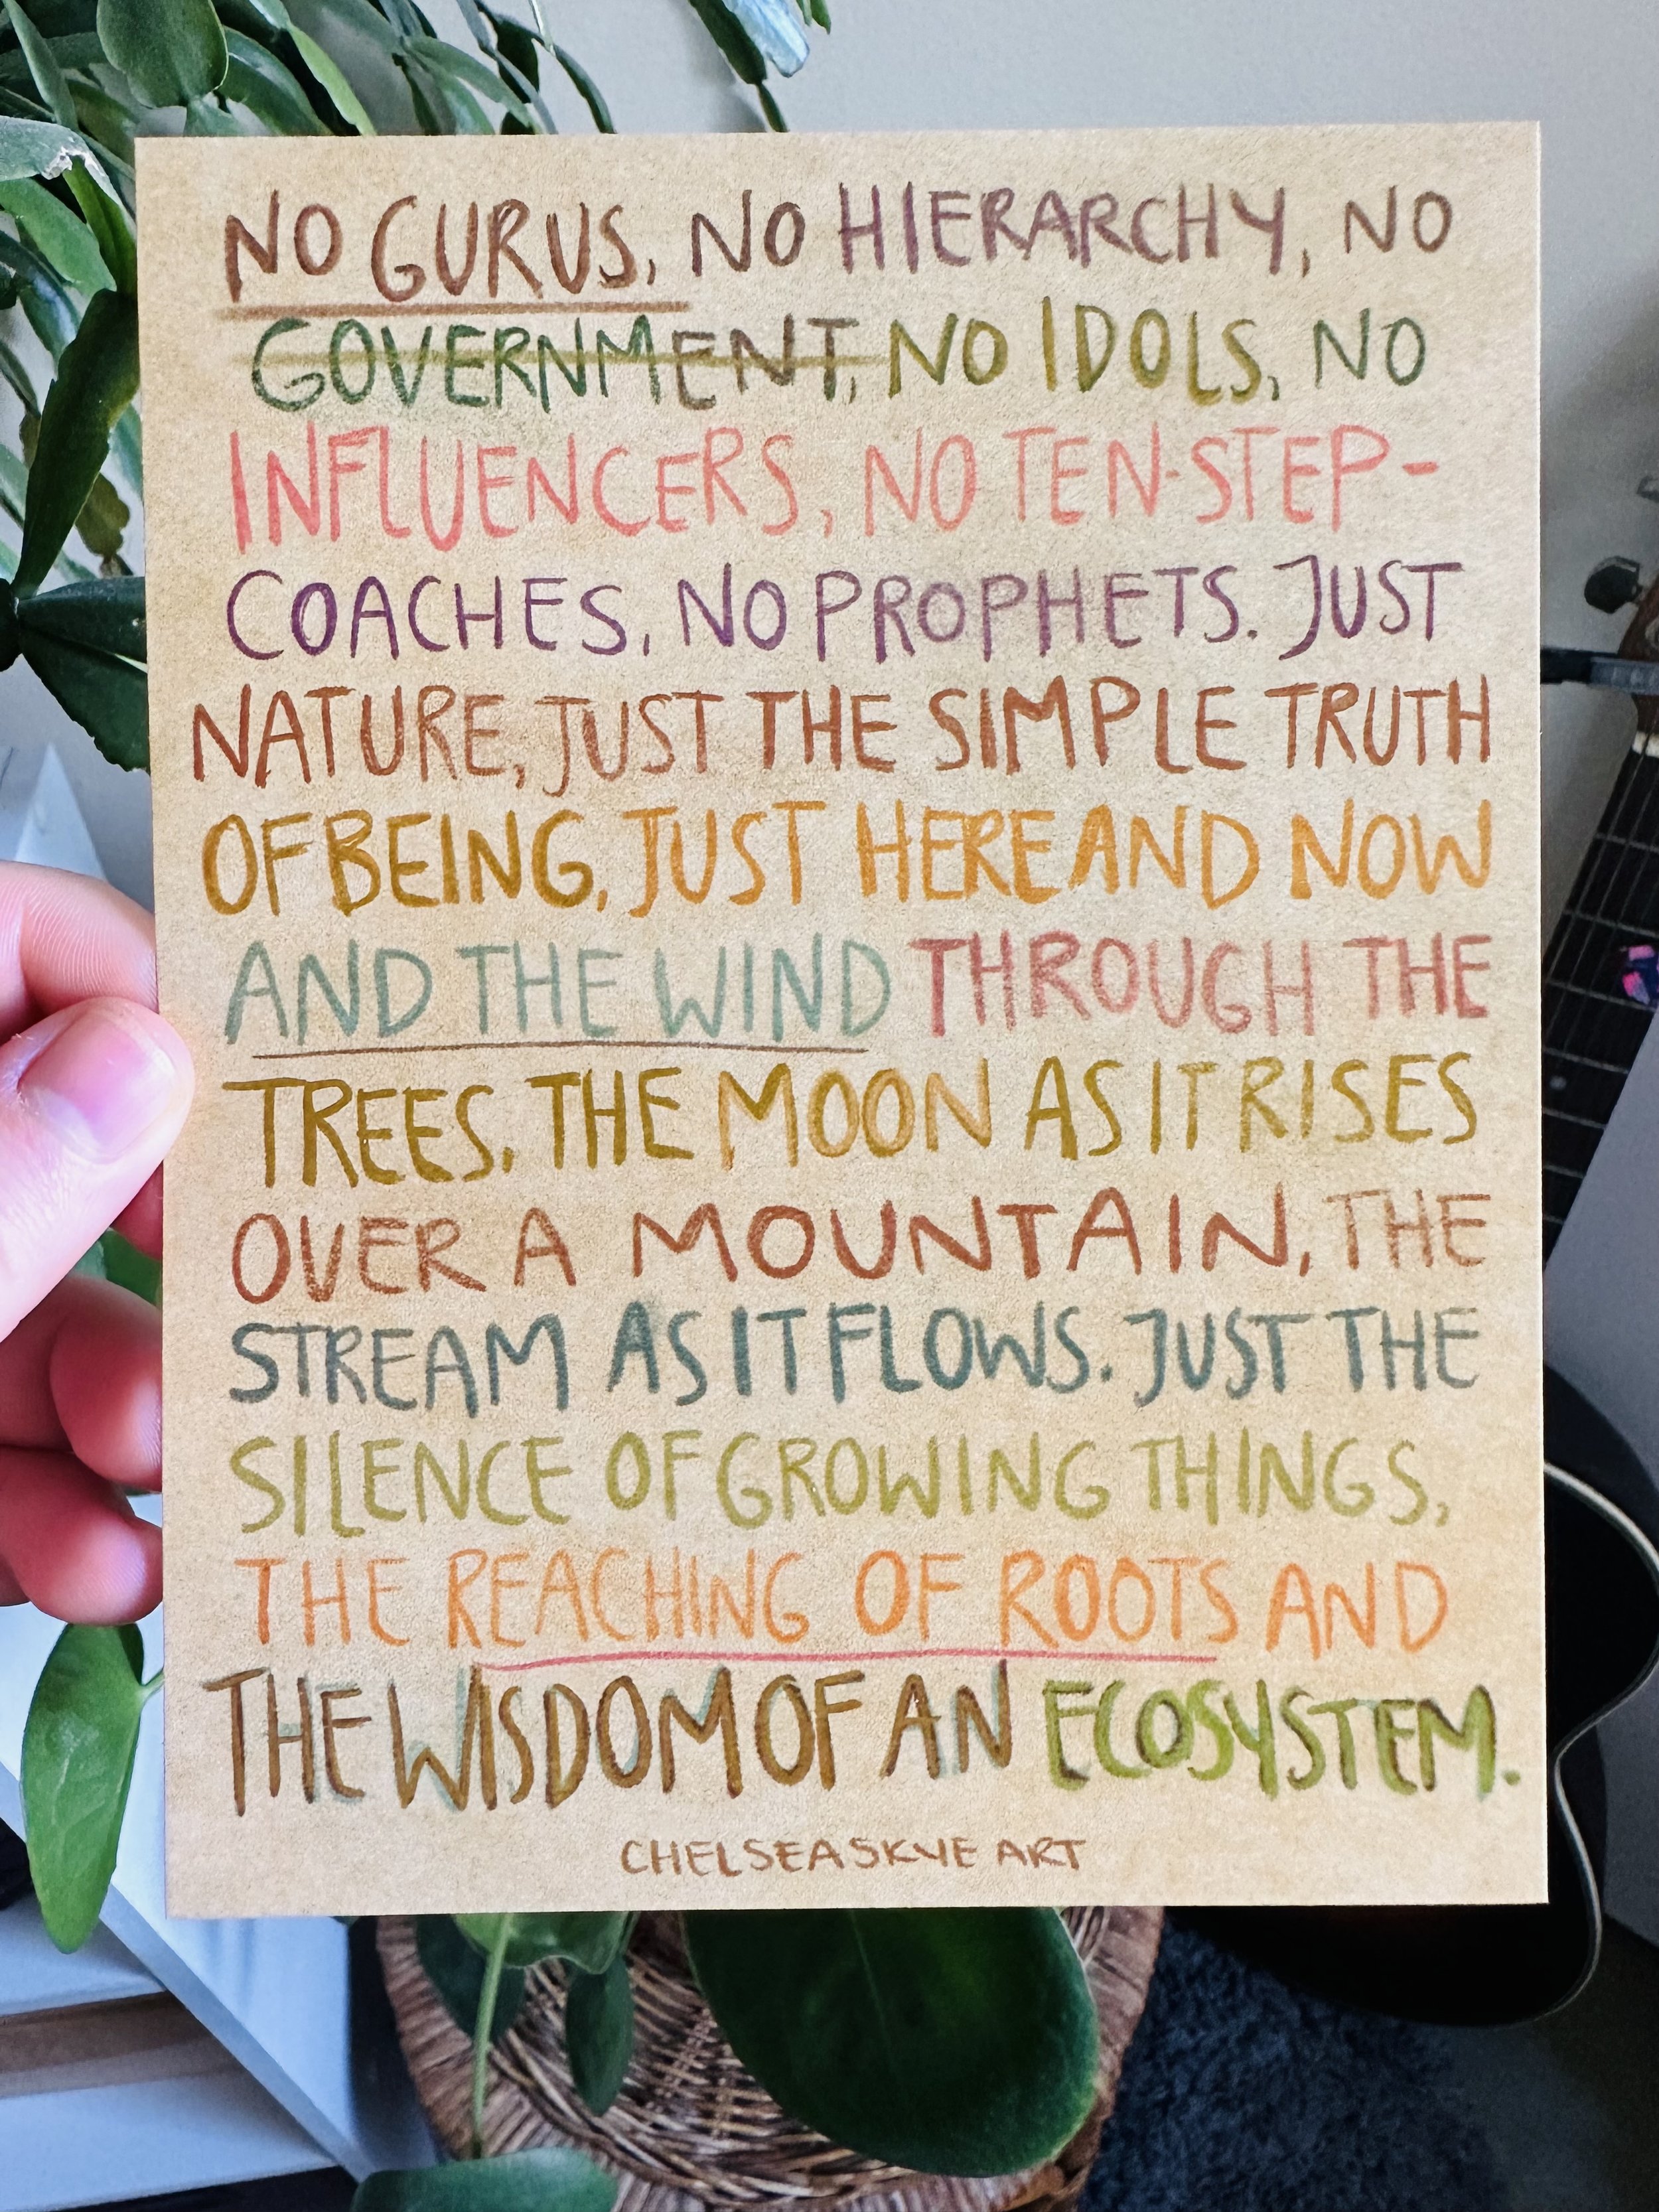 NO GURUS, NO HIERARCHY, NO
GOVERNMENT, NO IDOLS, NO
INFLUENCERS, NO TEN-STEP-
COACHES, NO PROPHETS. JUST
NATURE, JUST THE SIMPLE TRUTH
OF BEING, JUST HERE AND NOW
AND THE WIND THROUGH THE
TREES, THE MOON AS IT RISES
OVER A MOUNTAIN, THE
STREAM AS IT FLOWS. JUST THE
SILENCE OF GROWING THINGS,
THE REACHING OF ROOTS AND
THE WISDOM OF AN ECOSYSTEM.
CHELSEASKYE ART